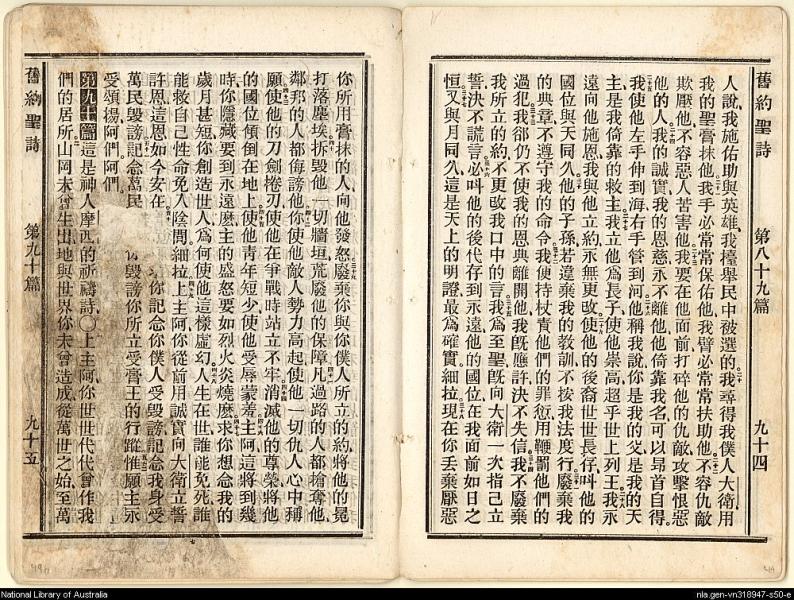 舊約聖詩　第八十九篇　九十四
人說我施佑助與英雄我擡舉民中被選的我尋得我僕人大衛用
我的聖膏抹他我手必常常保佑他我臂必常常扶助他不容仇敵
欺壓他不容惡人苦害他我要在他面前打碎他的仇敵攻擊恨惡
他的人我的誠實我的恩慈永不離他他倚靠我名可以昂首自得
我使他左手伸到海右手管到河他稱我說你是我的父是我的天
主是我倚靠的救主我立他爲長子使他崇高超乎世上列王我永
遠向他施恩我與他立約永無更改使他的後裔世世長存叫他的
國位與天同久他的子孫若違棄我的教訓不按我法度行廢棄我
的典章不遵守我的命令我便持杖責他們的罪愆用鞭罰他們的
過犯我卻仍不使我的恩典離開他我旣應許決不失信我不廢棄
我所立的約不更改我口中的言我爲至聖旣向大衛一次指己立
誓決不謊言必叫他的後代存到永遠他的國位在我面前如日之
恒又與月同久這是天上的明證最爲確實細拉現在你丟棄厭惡
你所用膏抹的人向他發怒廢棄你與你僕人所立的約將他的冕
打落塵埃拆毀他一切牆垣荒廢他的保障凡過路的人都搶奪他
鄰邦的人都侮謗他你使他敵人勢力高起使他一切仇人心中稱
願使他的刀劍捲刃使他在爭戰時站立不牢消滅他的尊榮將他
的國位傾倒在地上使他靑年短少使他受辱蒙羞主阿這將到幾
時你隱藏要到永遠麽主的盛怒要如烈火炎燒麽求你想念我的
歲月甚短你創造世人爲何使他這樣虛幻人生在世誰能免死誰
能救自己性命免入陰間細拉上主阿你從前用誠實向大衛立誓
許恩這恩如今安在　你記念你僕人受毀謗記念我身受
萬民毀謗記念萬民　毀謗你所立受膏王的行蹤惟願主永
受頌揚阿們阿們
第九十篇這是神人摩西的祈禱詩○上主阿你世世代代曾作我
們的居所山岡未曾生出地與世界你未曾造成從萬世之始至萬
舊約聖詩　第九十篇　九十五
National Library of Australia
nla.gen-vn318947-s50-e